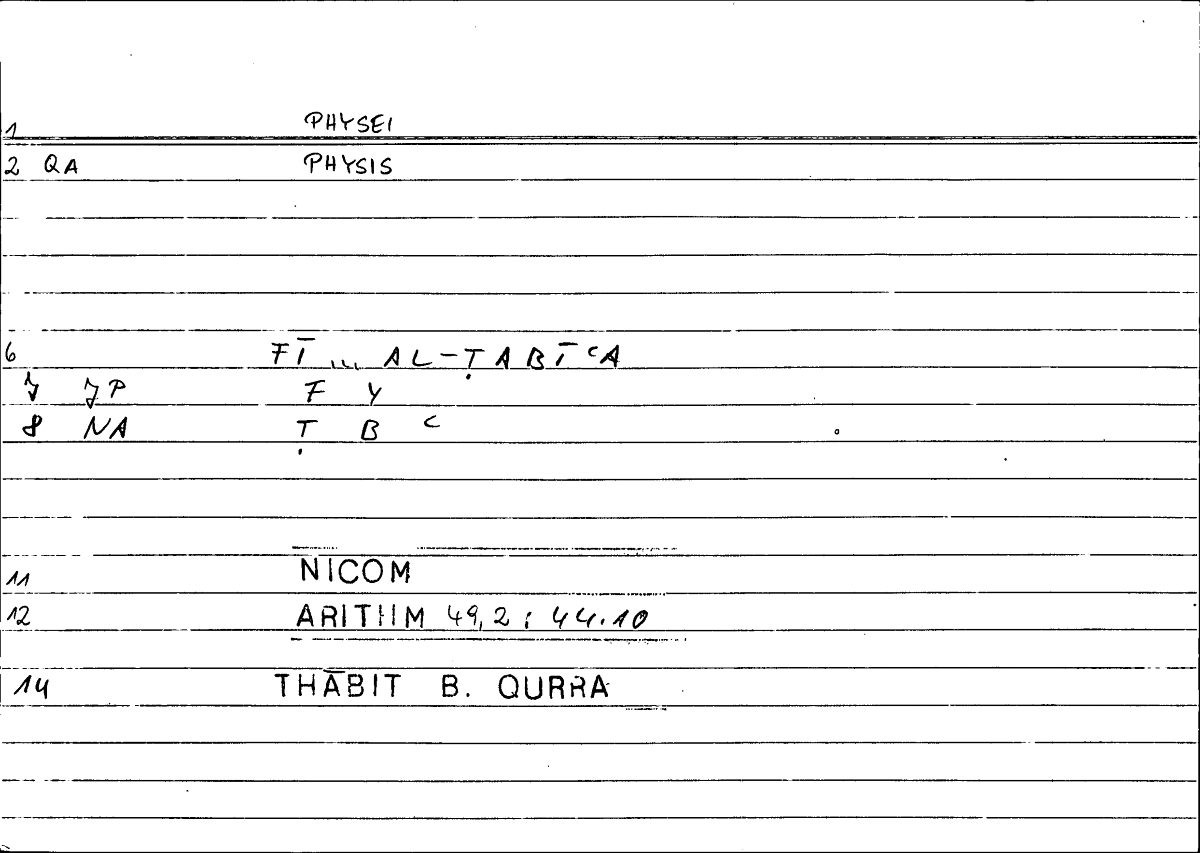 1 PHYSEI
2 QA PHYSIS
6 FĪ ... AL-ṬABĪʿA
7 JP F Y
8 NA Ṭ B ʿ
11 NICOM
12 ARITHM 49,2 : 44.10
14 THĀBIT B. QURRA